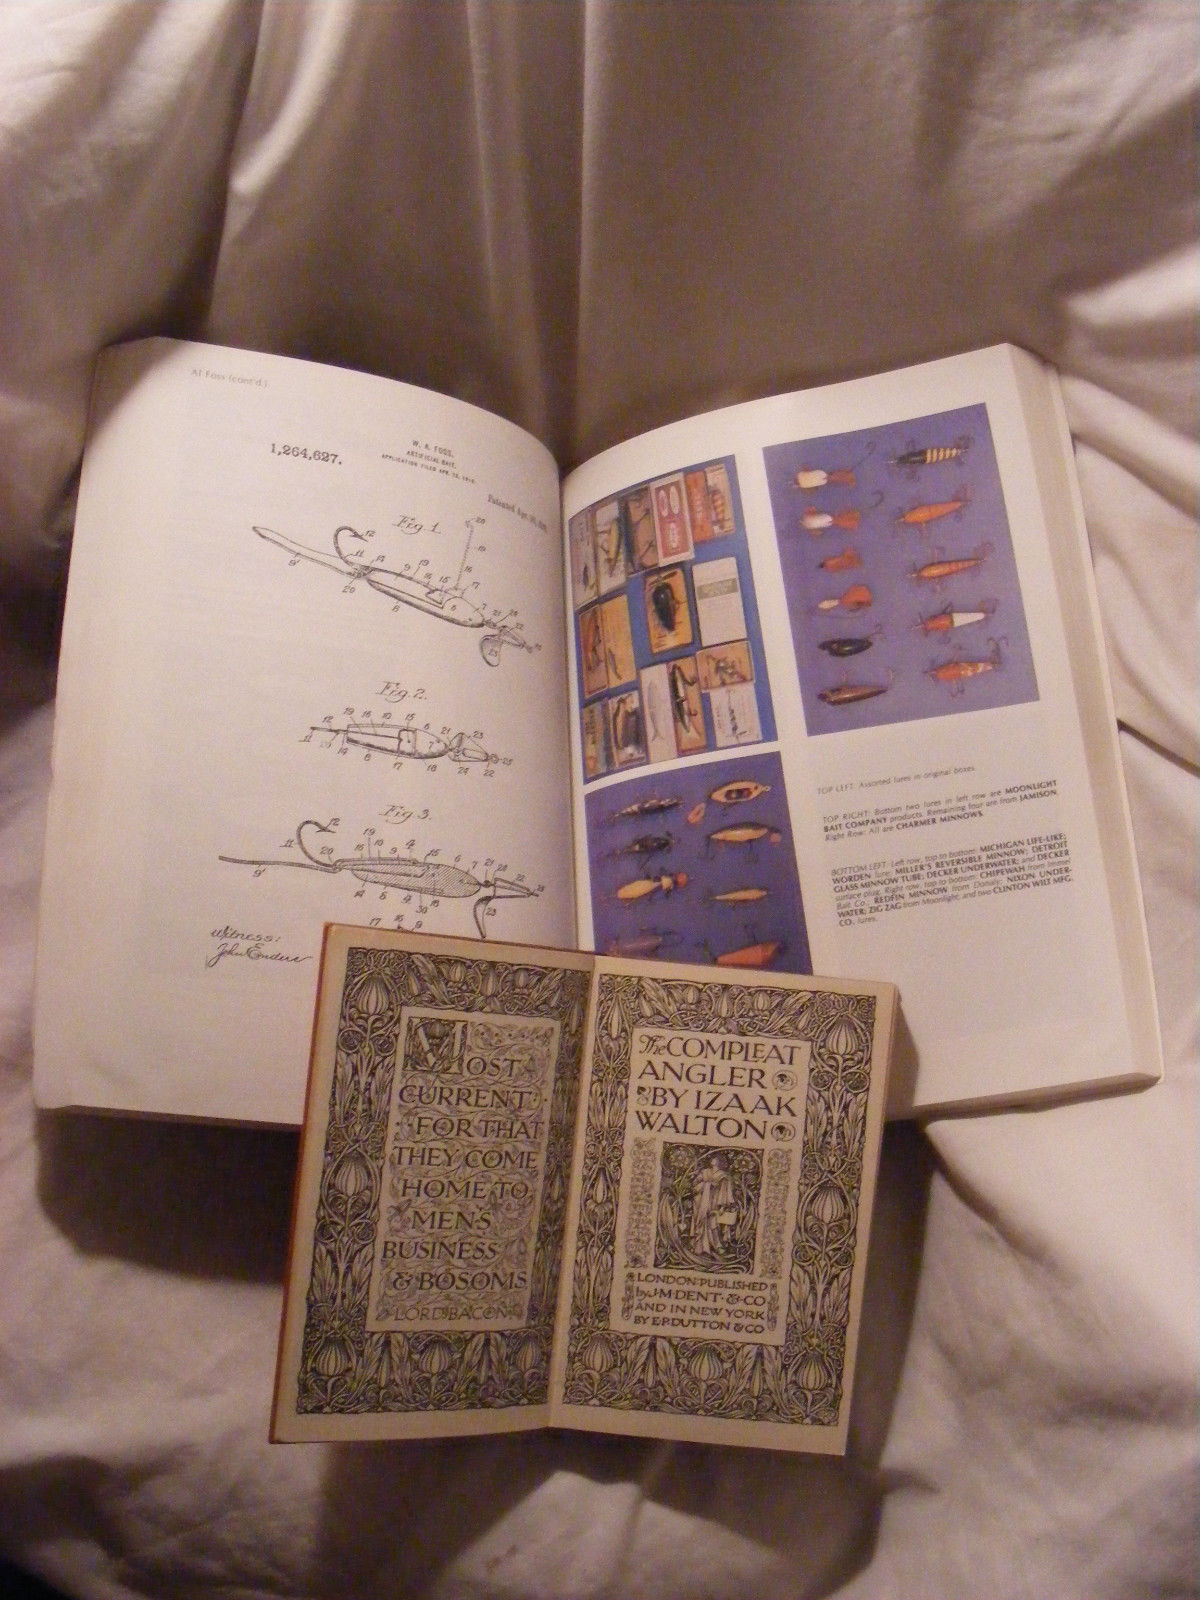 Al Foss (cont'd.)
W. A. FOSS.
ARTIFICIAL BAIT.
1,264,627.
Fig. 1.
Fig. 2.
Fig. 3.
Witness:
TOP LEFT: Assorted lures in original boxes.
TOP RIGHT: Bottom two lures in left row are MOONLIGHT
BAIT COMPANY products. Remaining four are from JAMISON.
Right Row: All are CHARMER MINNOWS.
BOTTOM LEFT: Left row, top to bottom: MICHIGAN LIFE-LIKE;
WORDEN lure; MILLER'S REVERSIBLE MINNOW; DETROIT
GLASS MINNOW TUBE; DECKER UNDERWATER; and DECKER
surface plug. Right row, top to bottom: CHIPEWAH from Immel
Bait Co., REDFIN MINNOW from Donaly; NIXON UNDER-
WATER; ZIG ZAG from Moonlight; and two CLINTON WILT MFG.
CO. lures.
MOST
CURRENT
FOR THAT
THEY COME
HOME TO
MENS
BUSINESS
& BOSOMS
LORD BACON
The COMPLEAT
ANGLER
BY IZAAK
WALTON
LONDON: PUBLISHED
by J·M·DENT·&·CO
AND IN NEW YORK
BY E·P·DUTTON & CO